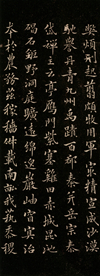 弊煩刑起翦頗牧用軍最精宣威沙漠
馳譽丹青九州禹蹟百郡秦并岳宗泰
岱禪主云亭鴈門紫塞雞田赤城昆池
碣石鉅野洞庭曠遠綿邈巖岫杳冥治
本於農務茲稼穡俶載南畝我藝黍稷